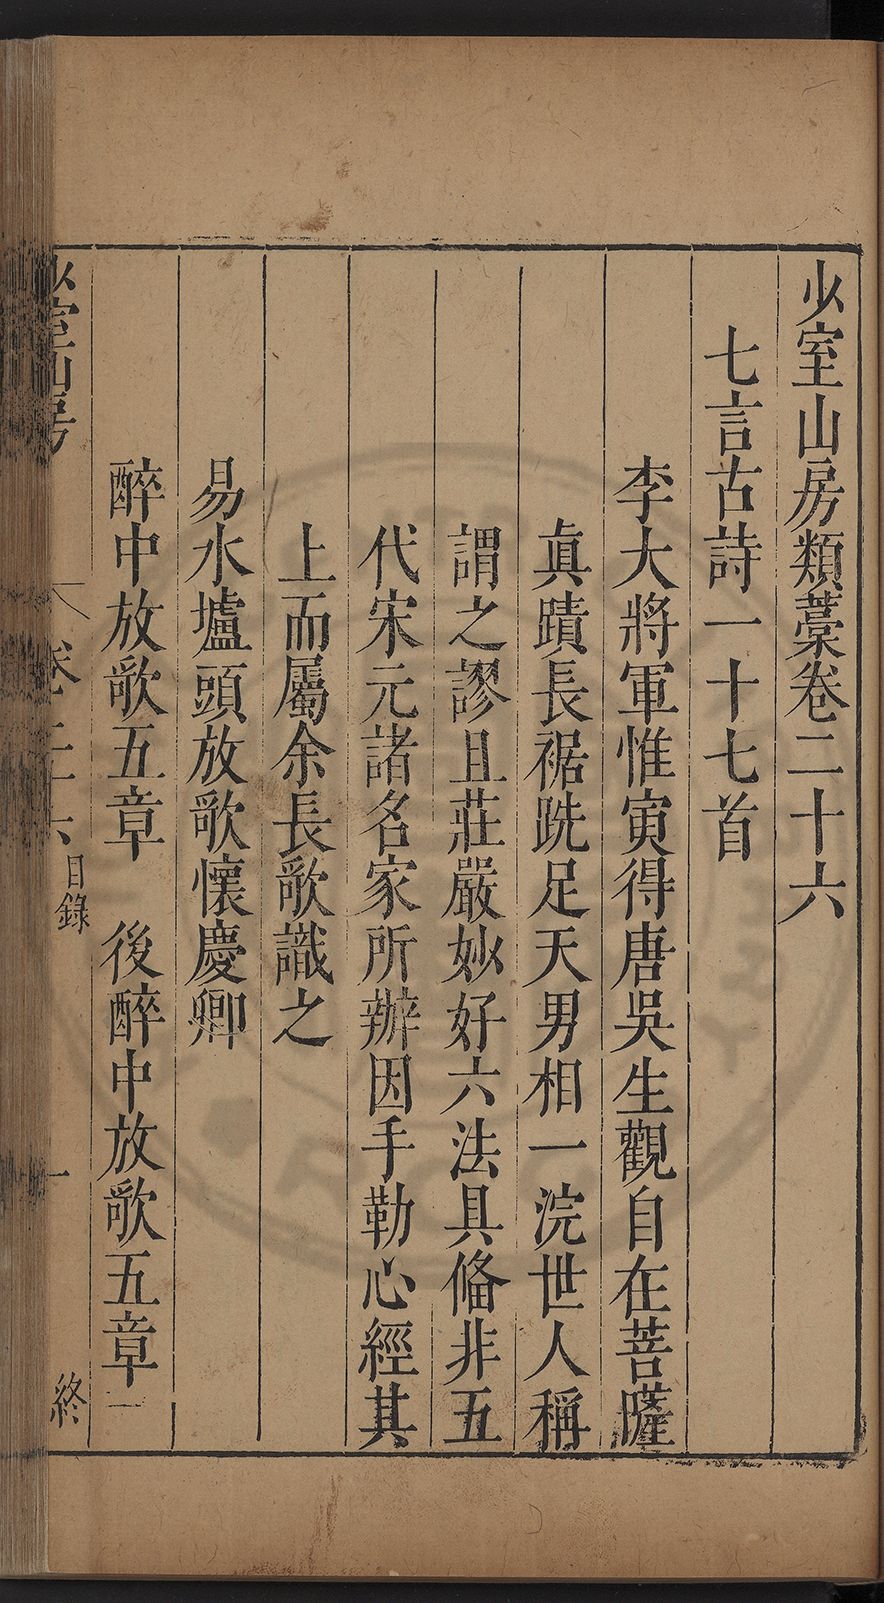 少室山房類藁卷二十六
七言古詩一十七首
李大將軍惟寅得唐吳生觀自在菩薩
眞蹟長裾跣足天男相一浣世人稱
謂之謬且莊嚴妙好六法具俻非五
代宋元諸名家所辦因手勒心經其
上而屬余長歌識之
易水壚頭放歌懷慶卿
醉中放歌五章　後醉中放歌五章
少室山房 卷二十六 目錄 一 終